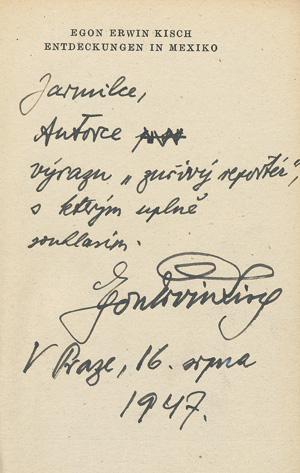 EGON ERWIN KISCH
ENTDECKUNGEN IN MEXIKO
Jarmilce,
Autorce
výrazu „zuřivý reportér",
s kterým uplně
souhlasím.
Egon Erwin Kisch
V Praze, 16. srpna
1947.